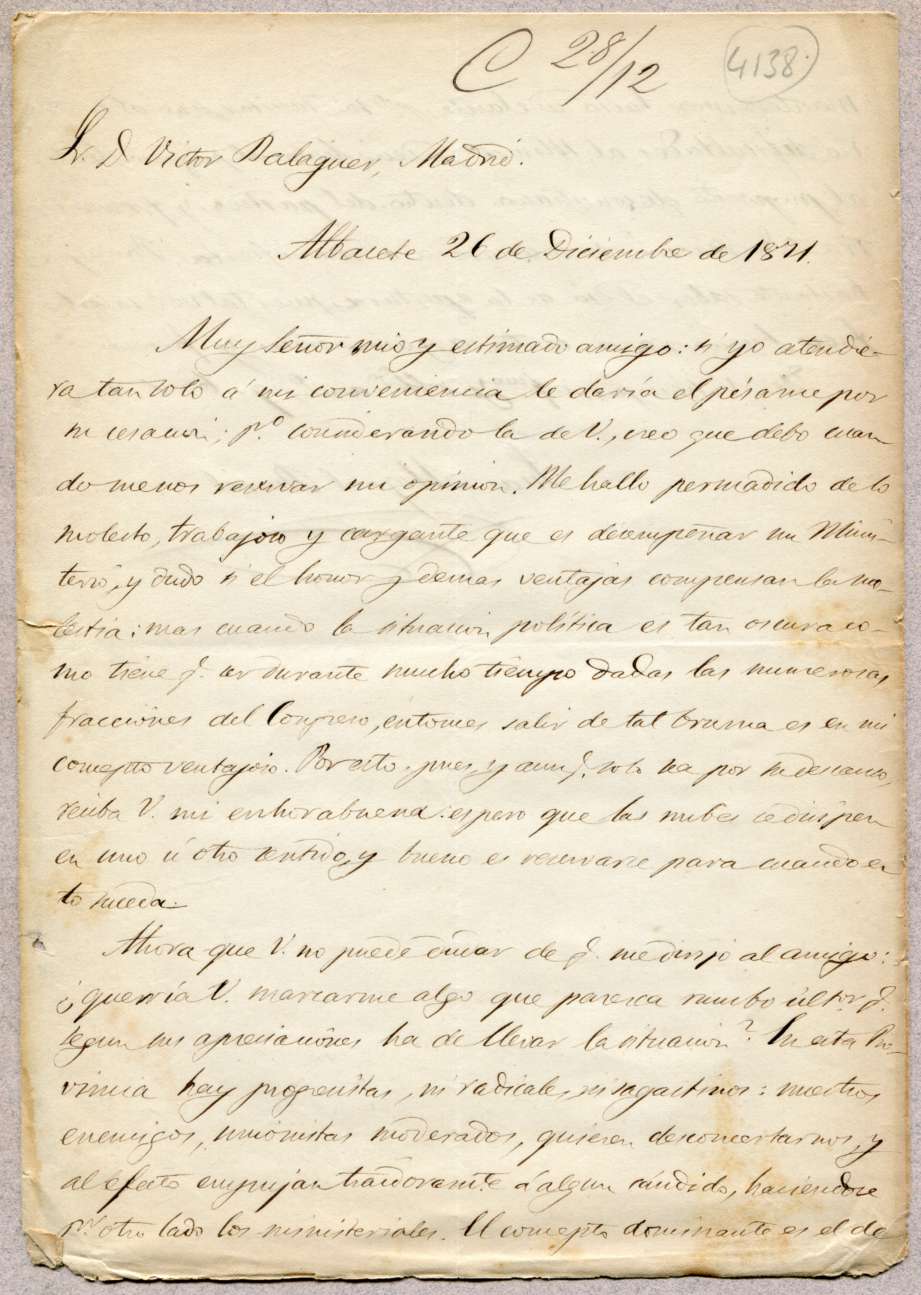 C 28/12
4138
Sr. D. Victor Balaguer, Madrid.
Albacete 26 de Diciembre de 1871.
Muy Señor mio y estimado amigo: si yo atendie-
ra tan solo á mi conveniencia le daría el pésame por
su cesacion; p.º considerando la de V., creo que debo cuan
do menos reservar mi opinion. Me hallo persuadido de lo
molesto, trabajoso y cargante que es desempeñar un Minis-
terio, y dudo si el honor y demas ventajas compensan la mo-
lestia; mas cuando la situacion política es tan oscura co-
mo tiene q. ser durante mucho tiempo dadas las numerosas
fracciones del Congreso, entonces salir de tal bruma es en mi
concepto ventajoso. Por esto, pues, y aunq. solo sea por su descanso,
reciba V. mi enhorabuena: espero que las nubes se disipen
en uno ú otro sentido, y bueno es reservarse para cuando es
to suceda.
Ahora que V. no puede dudar de q. me dirijo al amigo:
¿querría V. marcarme algo que paresca rumbo q.
segun sus apreciaciones ha de llevar la situacion? En esta Pro-
vincia hay progresistas, ni radicales, ni sagastinos: nuestros
enemigos, unionistas moderados, quieren desconcertarnos, y
al efecto empujan traidoramente á algun cándido, haciendose
p.r otro lado los ministeriales. El concepto dominante es el de